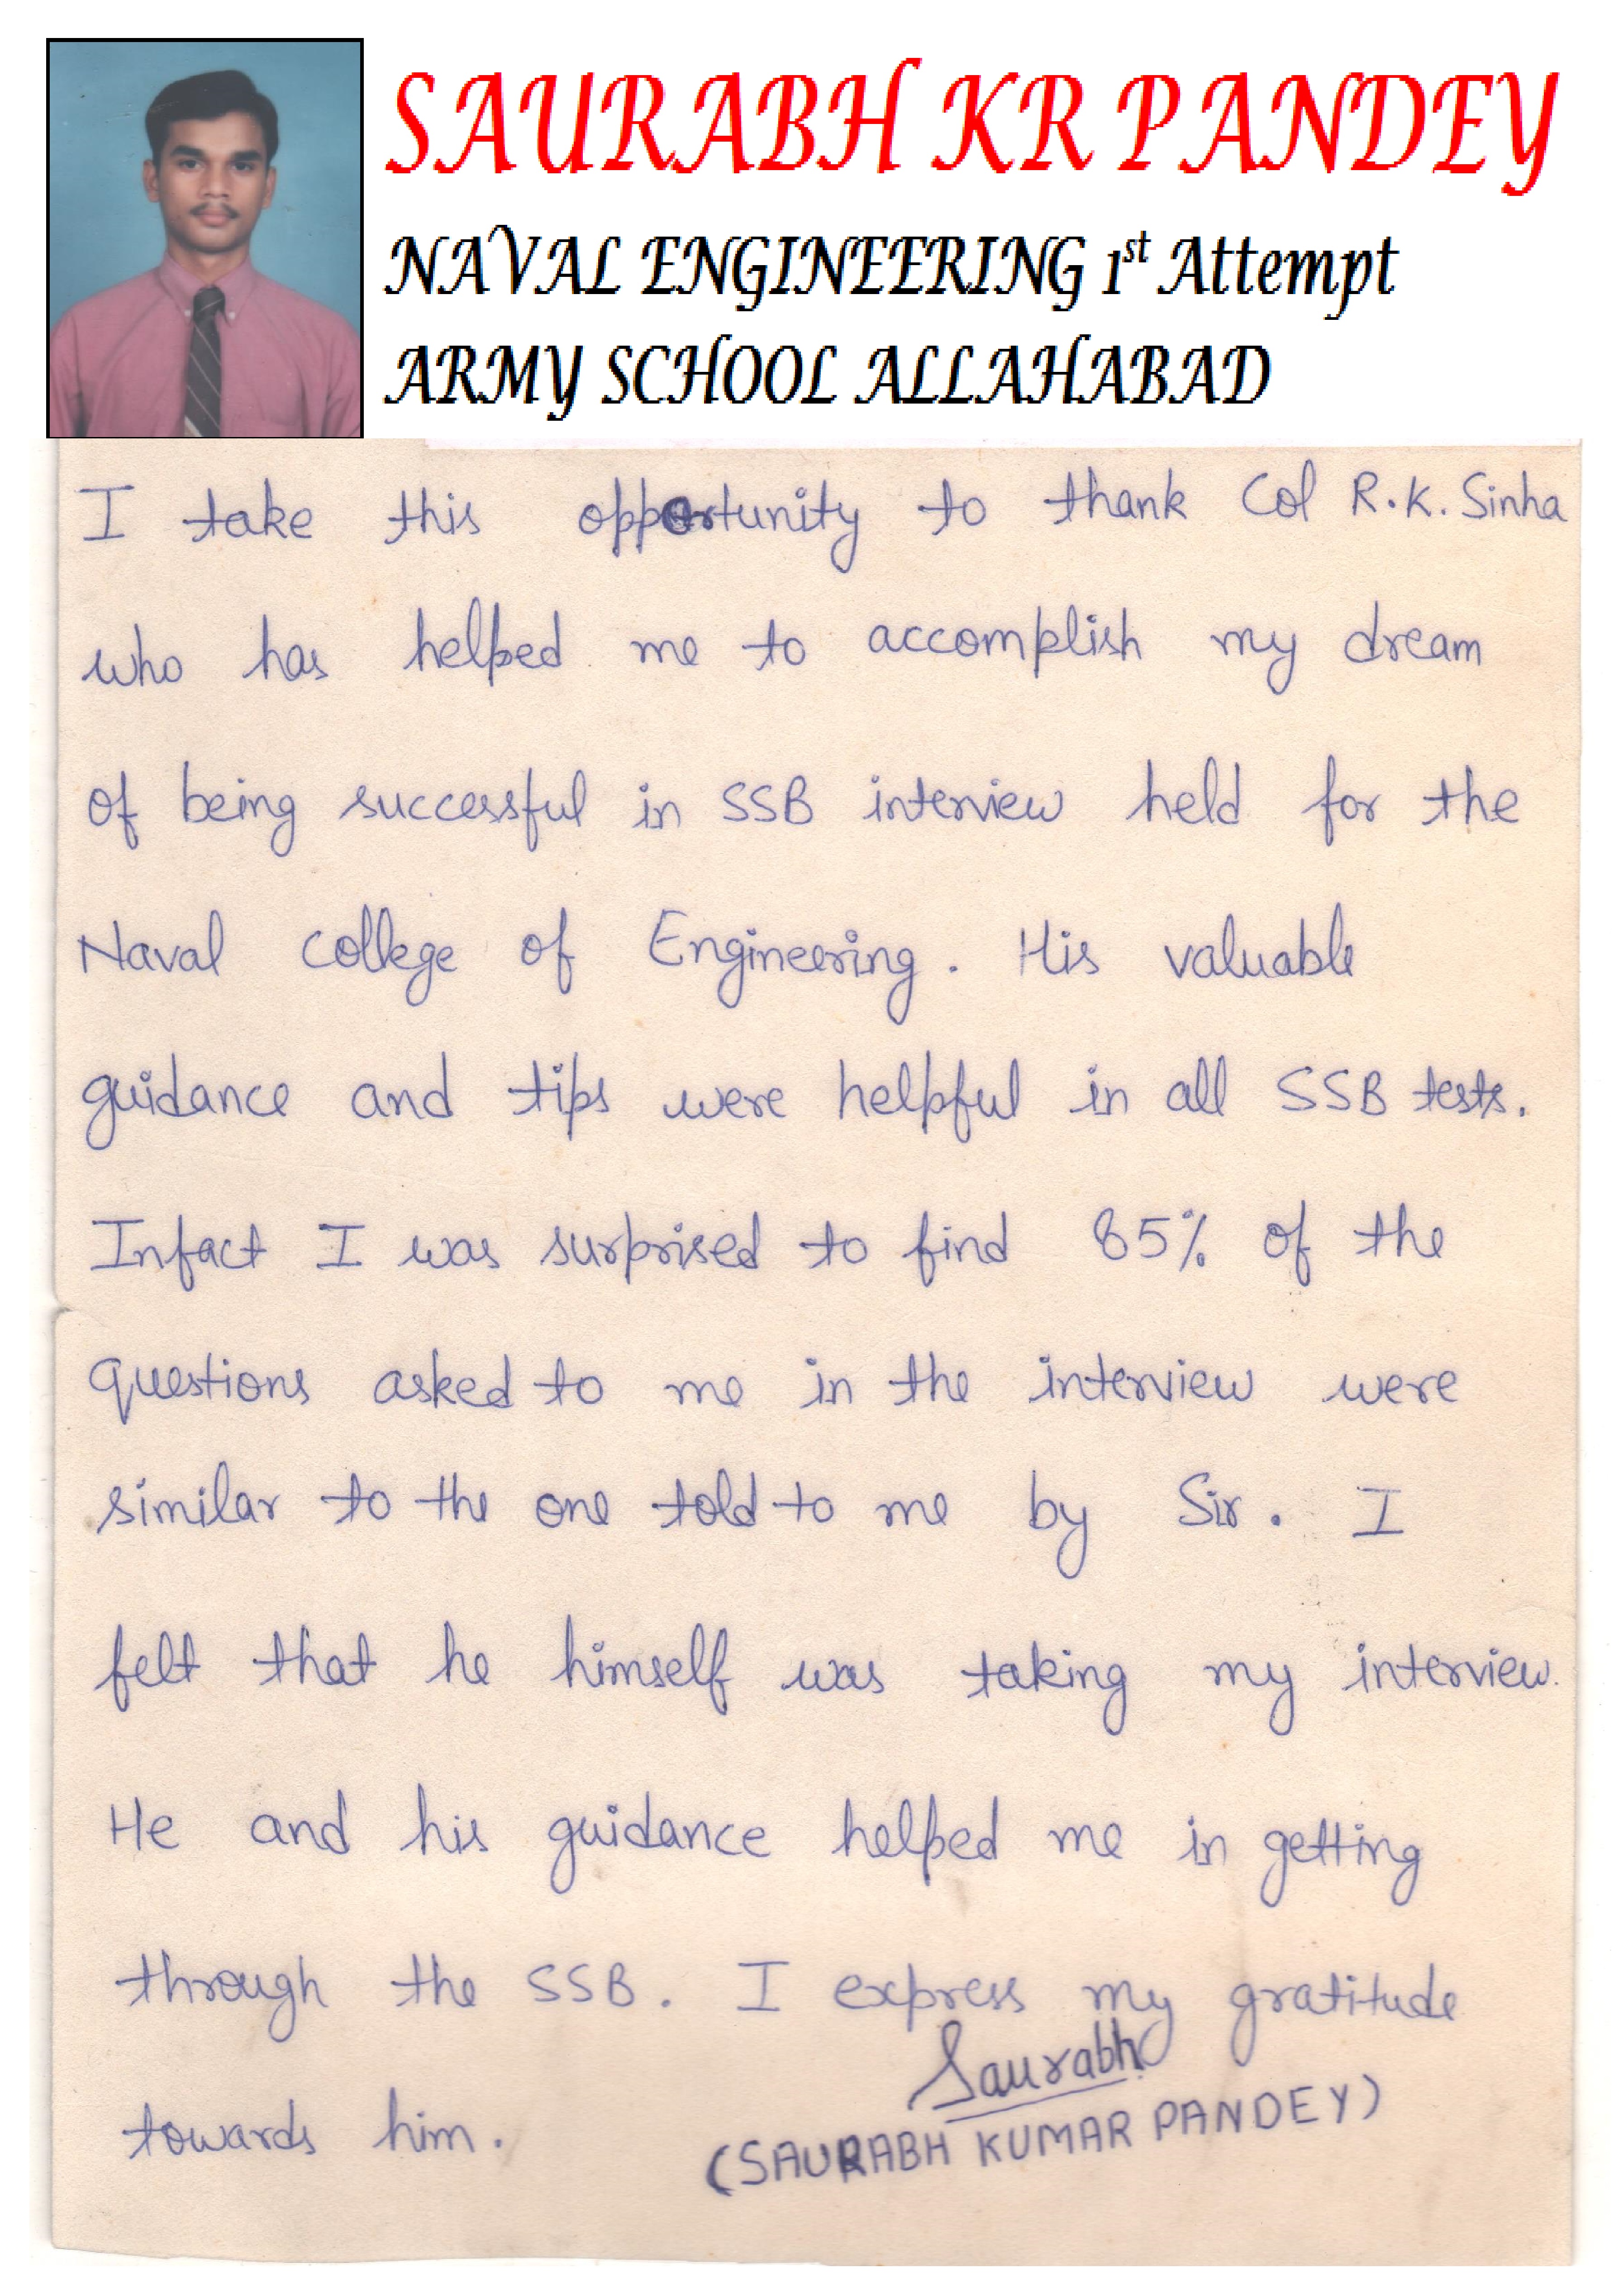 SAURABH KR PANDEY
NAVAL ENGINEERING 1st Attempt
ARMY SCHOOL ALLAHABAD
I take this opportunity to thank Col R.K. Sinha
who has helped me to accomplish my dream
of being successful in SSB interview held for the
Naval College of Engineering. His valuable
guidance and tips were helpful in all SSB tests.
Infact I was surprised to find 85% of the
questions asked to me in the interview were
similar to the one told to me by Sir. I
felt that he himself was taking my interview.
He and his guidance helped me in getting
through the SSB. I express my gratitude
towards him.
Saurabh
(SAURABH KUMAR PANDEY)